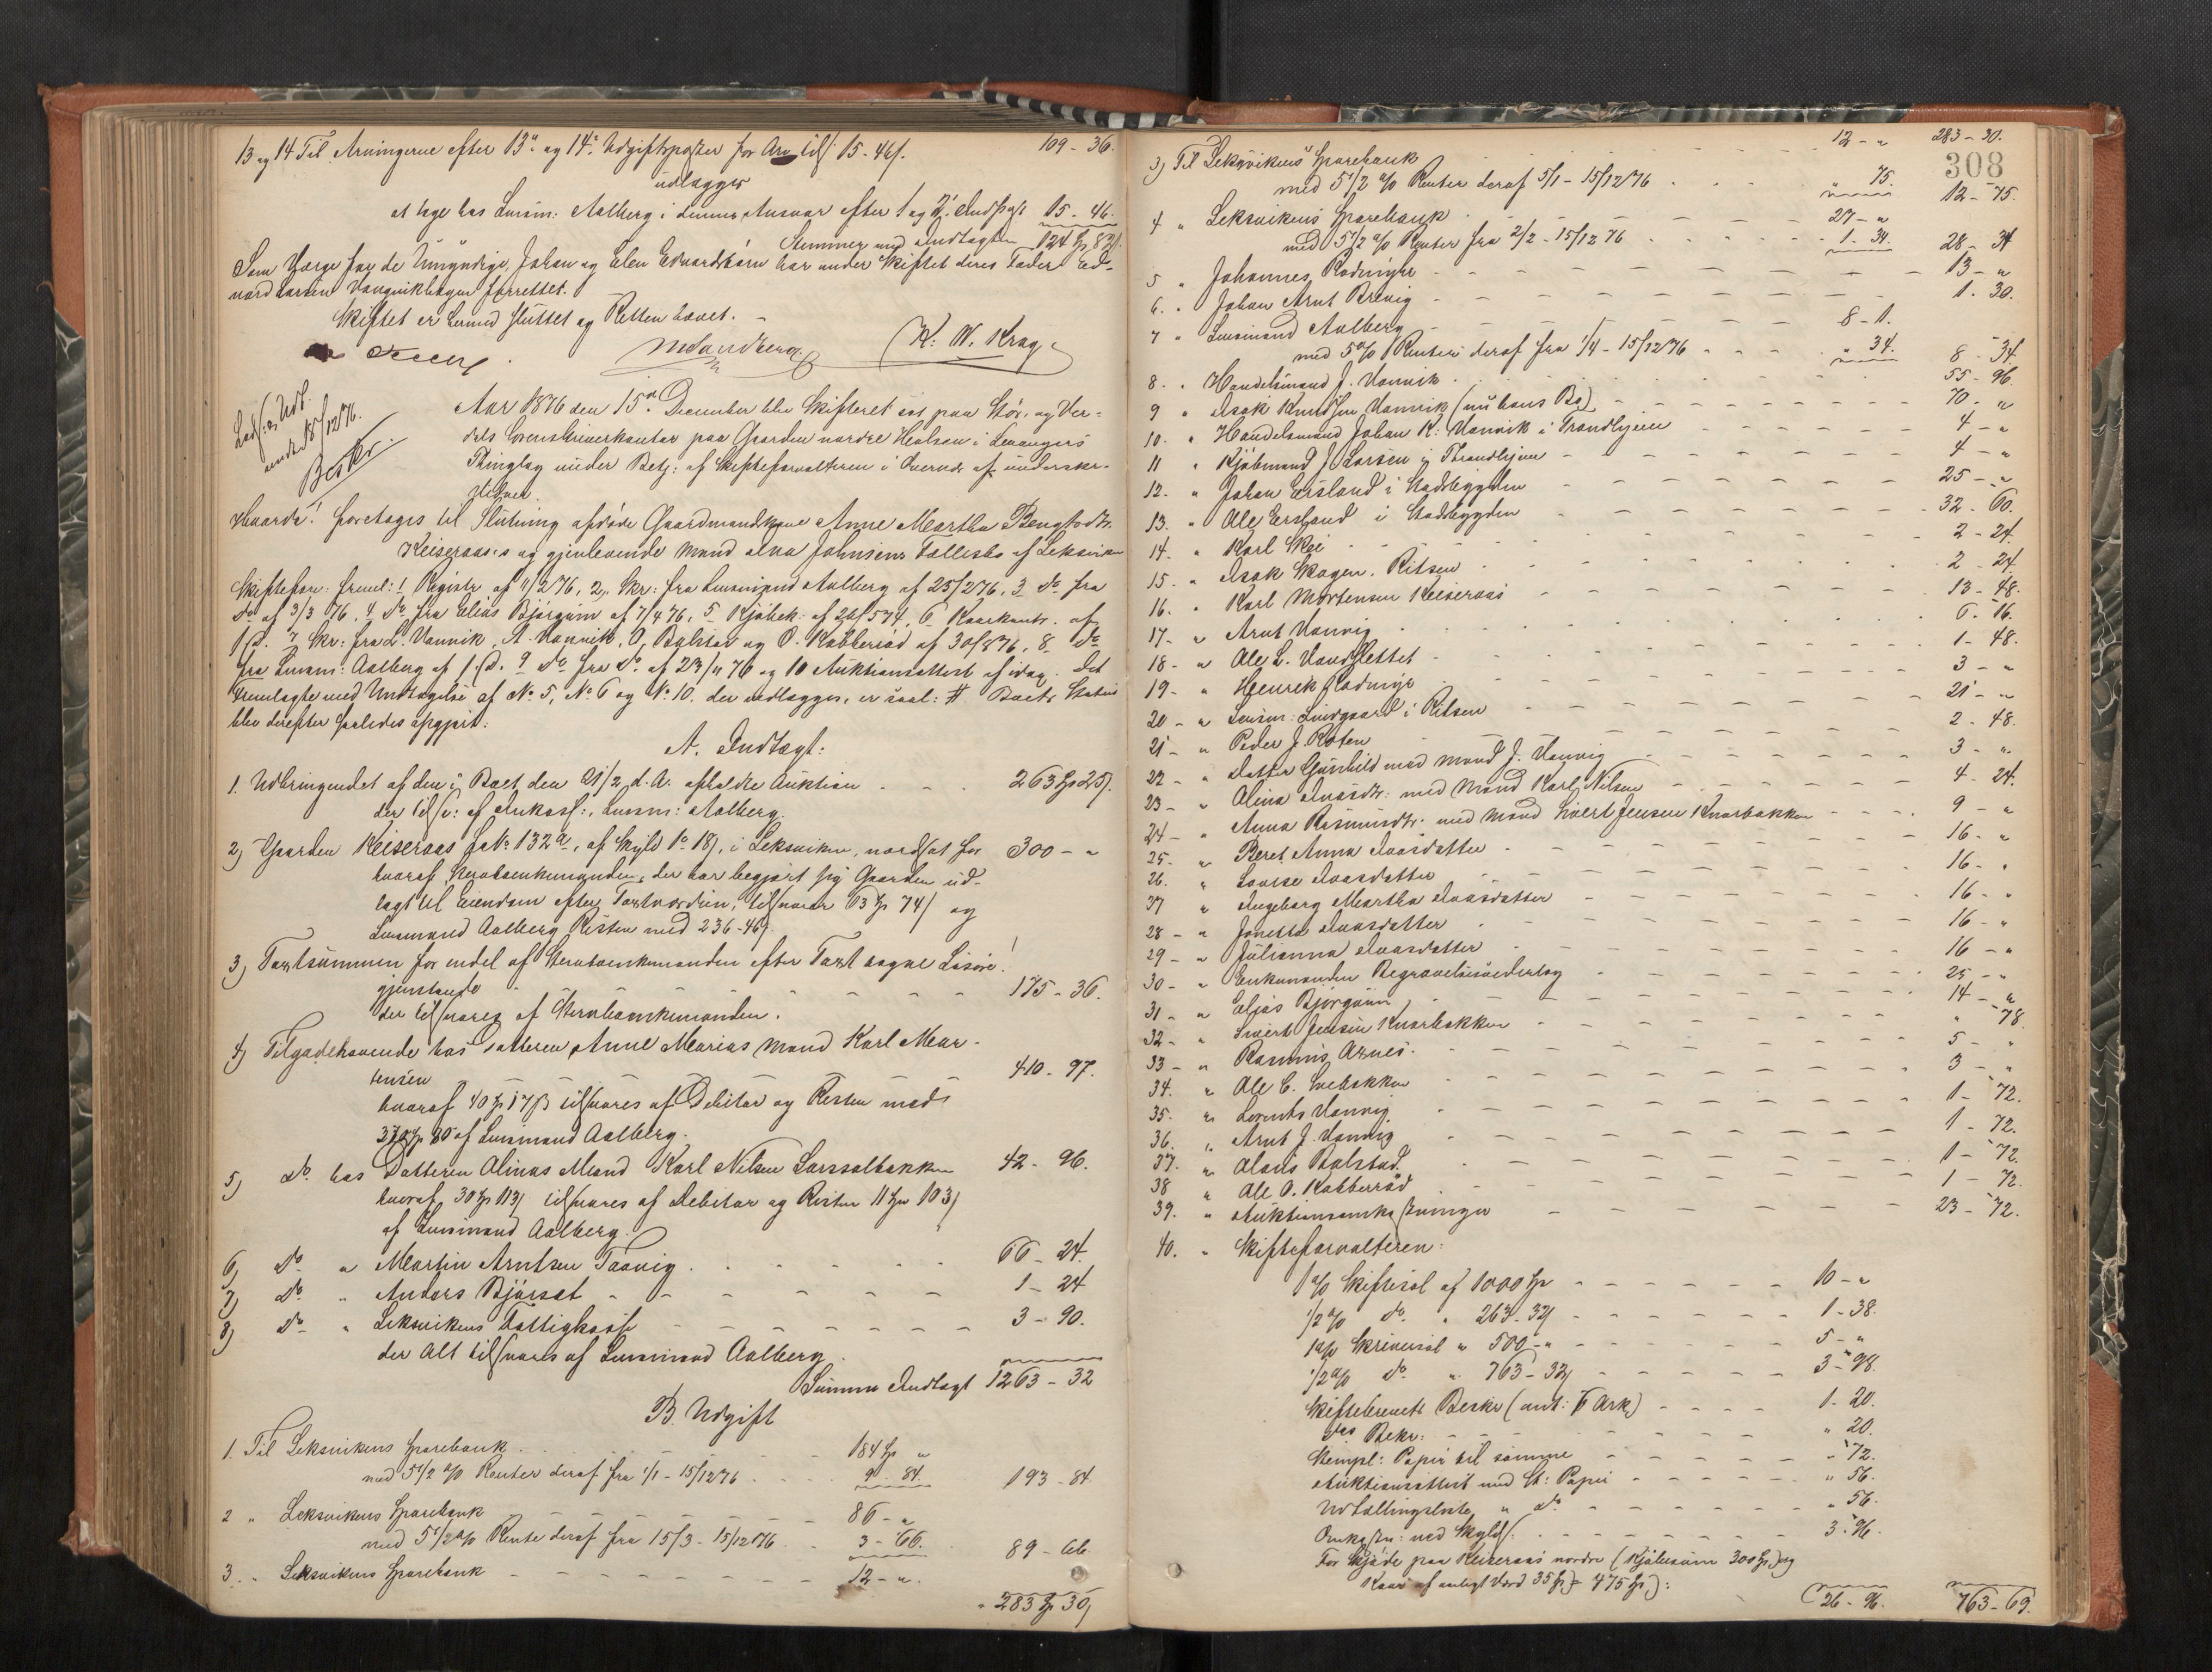 13 og 14 Til Arvingerne efter 13de og 14de Udgiftsposter for Arv tils: 15-46/. 109-36.
udlægges
at tage hos Lensm: Aalberg i dennes Ansvar efter 1 og 2. Indtægt 15-46.
Stemmer med Indtægten 124 Sp 82/.
Som Værge for de Umyndige, Johan og Elen Edvardsbørn har under Skiftet deres Fader Ed-
vard Larsen Vangvikhagen forrettet.
Skiftet er hermed sluttet og Retten hævet.
M Sandberg
K. W. Krag.
18/12 76.
Besker.
Aar 1876 den 15de December blev Skifteret sat paa Stør- og Ver-
dals Sorenskriverkontor paa Gaarden nordre Healsen i Levangers
Thinglag under Betj: af Skifteforvalteren i Overvær af underskr-
Vidner.
Hvorda! foretages til Slutning afdøde Gaardmandskone Anne Martha Bengtsdtr.
Keiseraas's og gjenlevende Mand Johnsens Fællesbo af Leksviken
Skiftefor: freml: 1. Registr. af 11/2 76, 2. Skr: fra Lensmand Aalberg af 25/2 76, 3 do fra
do af 3/3 76, 4 do fra Elias Bjørgum af 7/4 76, 5 Kjøbek: af 26/5 74, 6 Kaarkontr. af
s.D. 7 Skr: fra L. Vannvik, A. Vannvik, O. Balstad og O. Kobberød af 30/8 76, 8 do
fra Lensm: Aalberg af s.D. 9 do fra do af 23/11 76 og 10 Auktionsattest af idag. Det
fremlagte med Undtagelse af No 5, No 6 og No 10. der vedlægges, er saal: # Boets Status
blev derefter saaledes opgjort.
A. Indtægt:
1. Udbringendet af den i Boet den 21/2 d. A. afholdte Auktion . . . 263 Sp 25/.
der tils: af Inkass:, Lensm: Aalberg.
2) Gaarden Keiseraas L.No 132a, af Skyld 1o 18/, i Leksviken, vordsat for 300-"
hvoraf Sterbøenkemanden, der har begjært sig Gaarden ud-
lagt til Eiendom efter Taxtværdien, tilsvarer 63 Sp 74/ og
Lensmand Aalberg Resten med 236-46/.
3) Taxtsummen for endel af Sterboenkemanden efter Taxt tagne Løsøre!
gjenstande - - - - - 175-36.
der tilsvares af Sterboenkemanden.
4) Tilgodehavende hos Datteren Anne Marias Mand Karl Mor-
tensen - - - - 410-97.
hvoraf 40 Sp 17/ß tilsvares af Debitor og Resten med
370 Sp 80 af Lensmand Aalberg.
5) do hos Datteren Alinas Mand Karl Nilsen Larssalbakken 42-96.
hvoraf 30 Sp 113/ tilsvares af Debitor og Resten 11 Sp 103/
af Lensmand Aalberg.
6) do " Martin Arntsen Faavig . . . . . 66-24.
7) do " Anders Bjørset - - - - - 1-24
8) do " Leksvikens Fattigkasse - - - - - 3-90.
der Alt tilsvares af Lensmand Aalberg.
Summa Indtægt 1263-32
B. Udgift
1. Til Leksvikens Sparebank . . . . 184 Sp "
med 5 1/2 % Renter deraf fra 1/1 - 15/12 76 . . . 9-84. 193-84
2 " Leksvikens Sparebank - - - 86-"
med 5 1/2 % Rente deraf fra 15/3 - 15/12 76 . . 3-66. 89-66
3. " Leksvikens Sparebank - - - - - 12-".
" 283 Sp 30/
12-" 283-30.
308
3) Til Leksvikens Sparebank
med 5 1/2 % Renter deraf 5/1 - 15/12 76 . . . " 75. 12-75.
4 " Leksvikens Sparebank . 27-"
med 5 1/2 % Renter fra 2/2 - 15/12 76 . . . 1-34. 28-34
5 " Johannes Rodmyhr - - - - - 13-"
6. " Johan Arnt Brevig - - - - - 1-30.
7 " Lensmand Aalberg - - - - - 8-1.
med 5 % Renter deraf fra 1/4 - 15/12 76 - - - " 34. 8-34.
8. " Handelsmand J. Vannvik . . . . . 55-96.
9 " Isak Knudsen Vannvik (nu hans Bo) - - - - - 70-"
10. " Handelsmand Johan K. Vannvik i Trondhjem - - - - - 4-"
11 " Kjøbmand J. Larsen i Throndhjem - - - - - 4-"
12. " Johan Ersland i Stadsbygden - - - - - 25-"
13. " Ole Ersland i Stadsbygden - - - - - 32-60.
14. " Karl Skei - - - - - 2-24.
15. " Isak Skagen. Ritsem - - - - - 2-24.
16. " Karl Mortensen Keiseraas - - - - - 13-48.
17. " Arnt Vanvig . . . . . 6-16.
18- " Ole L. Vandslettet - - - - - 1-48.
19- " Henrik Rodmyr - - - - - 3-"
20- " Lensm: Lindgaard i Ritsem - - - - - 21-"
21- " Peder J. Roten - - - - - 2-48.
22- " Datter Gunhild med Mand J. Vannvig - - - - - 3-".
23- " Alina Ivarsdtr. med Mand Karl Nilsen - - - - - 4-24.
24- " Anna Rasmusdtr. med Mand Sivert Jensen Knarbakken - - - 9-"
25. " Beret Anna Ivarsdatter - - - - - 16-"
26. " Lovise Ivarsdatter - - - - - 16-"
27 " Ingeborg Martha Ivarsdatter - - - - - 16-"
28- " Jonetta Ivarsdatter - - - - - 16-"
29- " Julianna Ivarsdatter - - - - - 16-"
30- " Enkemanden Begravelsesvederlag - - - - - 25-"
31- " Elias Bjørgum - - - - - 14-"
32- " Sivert Jensen Knarbakken - - - - - " 78
33- " Rasmus Aunes. - - - - - 5-"
34. " Ole C. Svebakken - - - - - 3-"
35. " Lorents Vanvig - - - - - 1-72.
36. " Arnt J. Vanvig - - - - - 1-72.
37. " Olaus Balstad - - - - - 1-72
38 " Ole O. Kobberrød - - - - - 1-72.
39. " Auktionsomkostninger - - - - - 23-72.
40. " Skifteforvalteren:
1 % Skiftesal af 1000 Sp - - - - - 10-"
1/2 % do " 263-32/ - - - - - 1-38.
1 % Skriversal " 500-" - - - - - 5-"
1/2 % do " 763-32/ - - - - - 3-98.
Skiftebrevets Beskr (ant: 6 Ark) - - - - 1-20.
dets Bekr: - - - - - " 20.
Stempl: Papir til samme - - - - - " 72.
Auktionsattest med St: Papir - - - - - " 56.
Udtællingsliste " do - - - - - " 56.
Omkostn: ved Skylds. . - - - - - 3-96.
For Skjøde paa Keiseraas nordre (Kjøbesum 300 Sp) og
Kaar af aarligt Værd 35 Sp = 475 Sp):
26-96. 763-69.